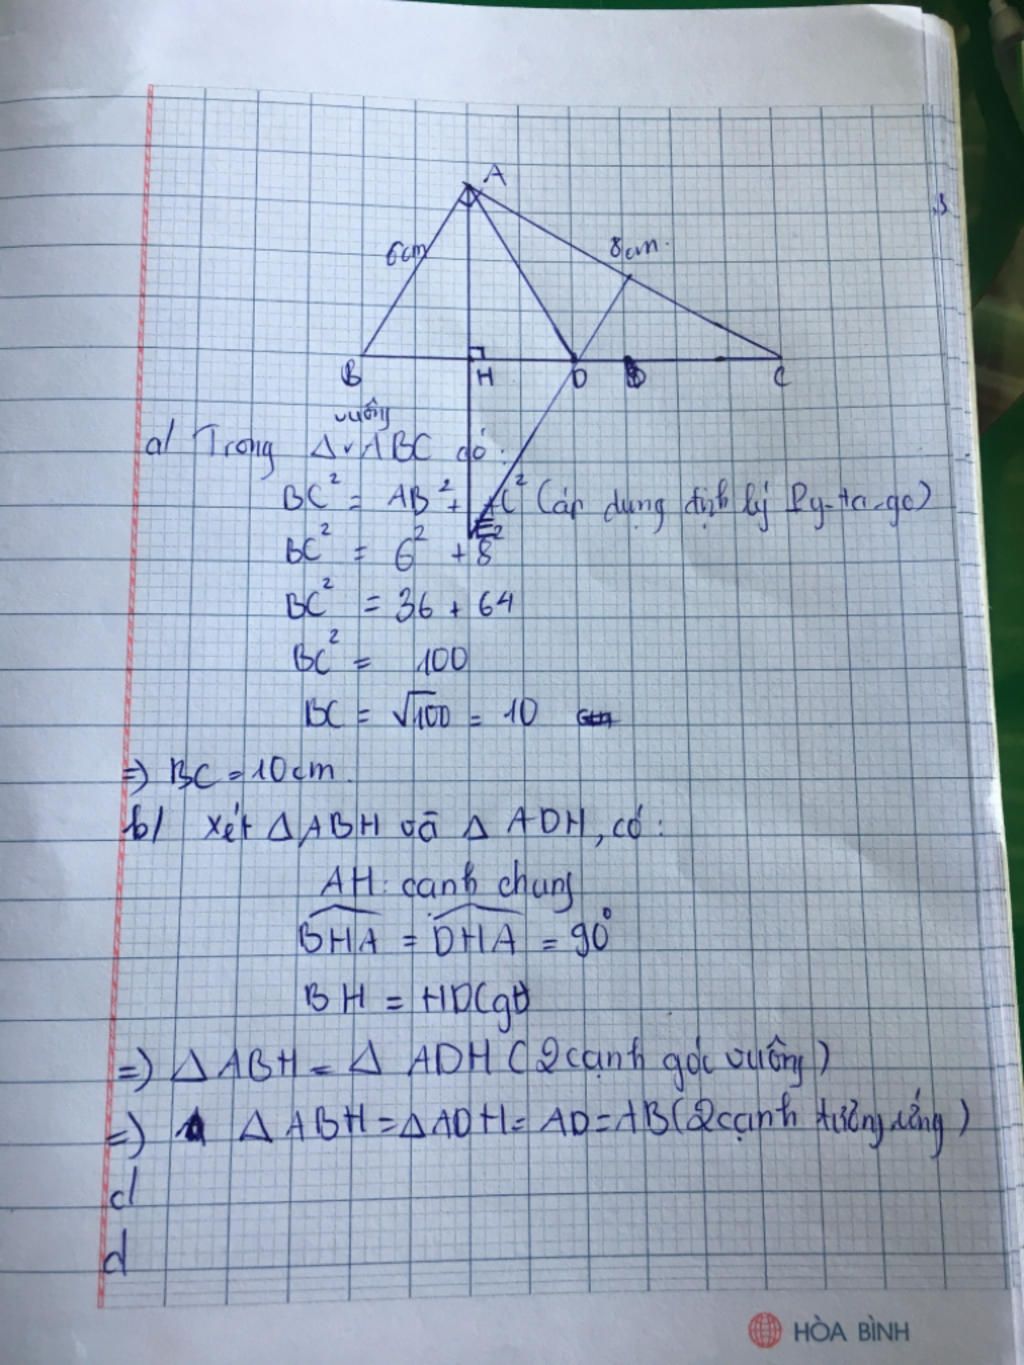 A
6cm
8cm
B
H
D
C
vuông
a/ Trong Δv ABC có:
BC² = AB² + AC² (áp dụng định lý Py-ta-go)
E
BC² = 6² + 8²
BC² = 36 + 64
BC² = 100
BC = √100 = 10
=) BC = 10cm.
b/ Xét Δ ABH và Δ ADH, có:
AH: cạnh chung
BHA = DHA = 90°
BH = HD(gt)
=) Δ ABH = Δ ADH (2 cạnh góc vuông)
=) Δ ABH = Δ ADH = AD = AB (2 cạnh tương ứng)
c/
d
HÒA BÌNH